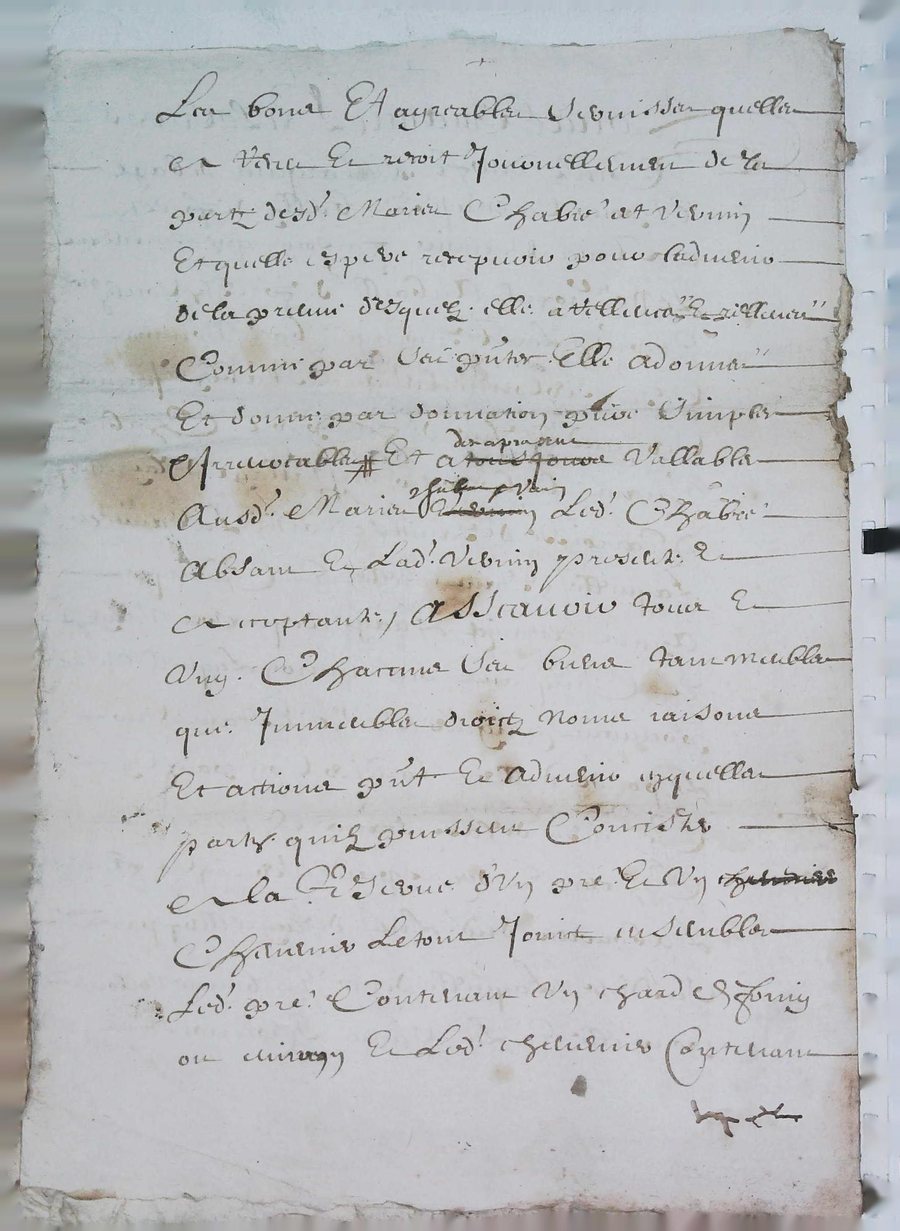 Les bons Et agreables Services quelle
a receu Et recoit Journellement de la
part desd. Maries Chabré et Vernin
Et quelle espere recepvoir pour ladvenir
de la preuve desquelz elle a rellevé Et relleve
Comme par ses pntes Elle a donné
Et donne par donnation pure Simple
Irrevocable # Et a tousjours Vallable
des a present
Ausd. Maries Led. Chabré
Absant Et Lad. Vernin presente Et
acceptante, Asscavoir tous Et
Ung Chacuns Ses biens tant meubles
que Immeubles droictz noms raisons
Et actions pnt Et advenir ezquelles
partz quilz puissent Concister
a la Reserve d'Un pré Et Un
Chenevier Le tout Joinct ensembles
Led. pré Contenant Un chard de foing
ou environ Et Led. chenevier Contenant